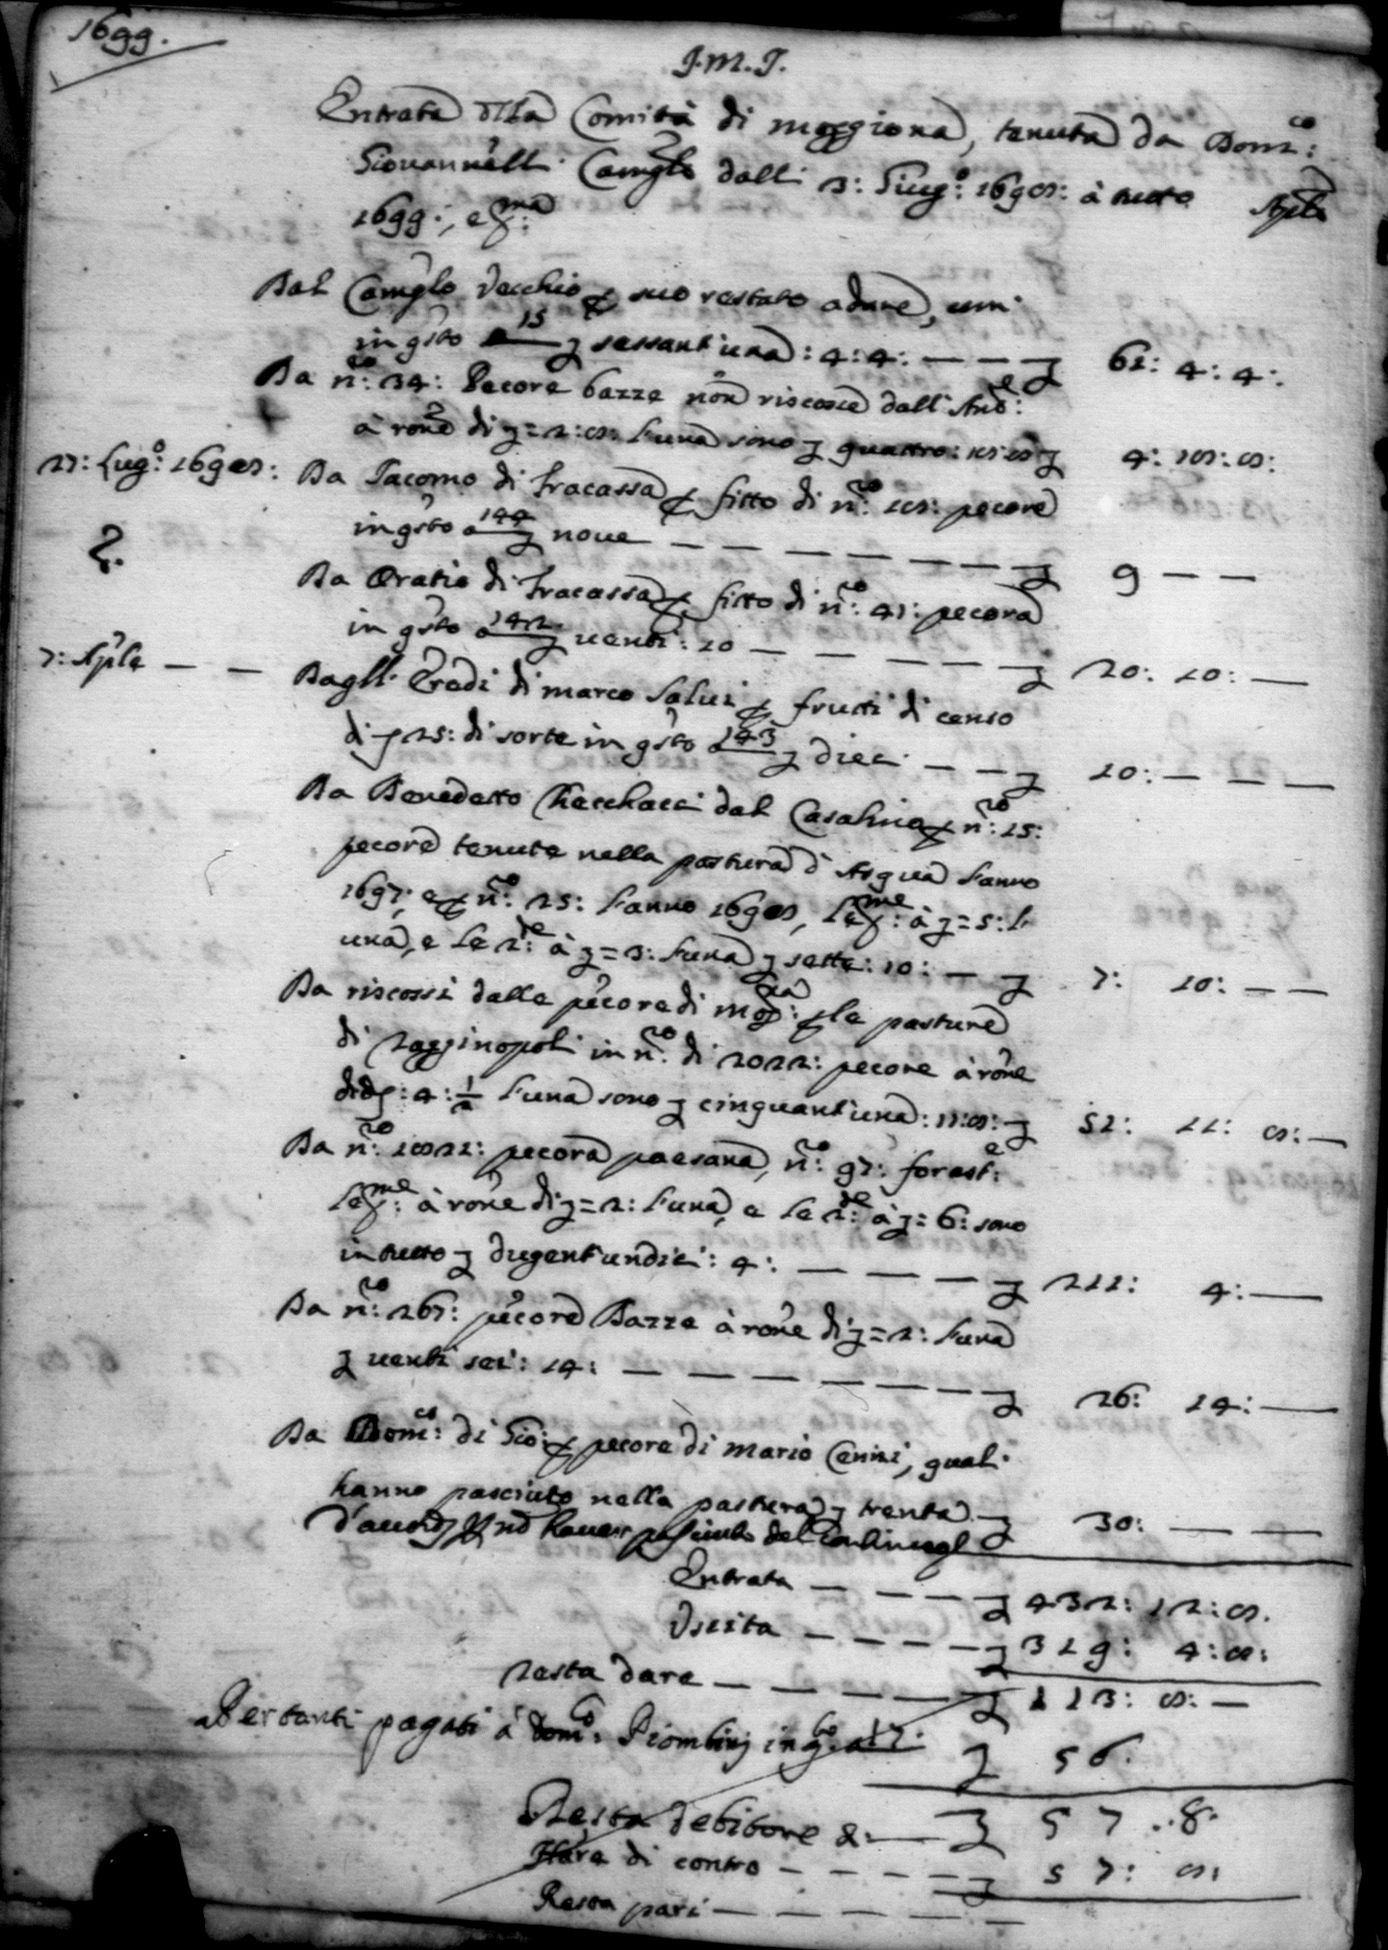 1699.
J.M.J.
Entrata della Comità di moggiona, tenuta da Dom:co
Giovannelli Camg:lo dalli 3: Giug:o 1698: à tutto Aple
1699:, e p:ma
Dal Camg:lo Vecchio p suo restato a dare, come
in q:sto a 15 sessant'una: 4: 4: — — 61: 4: 4:
Da n:ro 24: Pecore bazze non riscosse dall' Ant:e
à rone di = 2: 8: l'una sono quattro: 18: 8 4: 18: 8:
27: Lug:o 1698: Da Jacomo di fracassa p fitto di n:ro 18: pecore
in q:sto a 144 noue — — — — — — — 9 — —
2.
Da Oratio di fracassa p fitto di n:ro 41: pecora
in q:sto a 142 uenti: 10 — — — — — — 20: 10: —
7: Aple — — Dagli Eredi di marco Salui p frutti di censo
di 25: di sorte in q:sto a 143 dieci — — 10: — — —
Da Benedetto Checcacci dal Casalino p n:ro 15:
pecore tenute nella pastura d' Asqua l'anno
1697: e p n:ro 25: l'anno 1698, le p:me à = 5: l'
una, e le 2:de à = 3: l'una sette: 10: — 7: 10: — —
Da riscossi dalle pecore di mog:na p le pasture
di Ragginopoli in n:ro di 2022: pecore à rone
di : 4: 1/2 l'una sono cinquant'una: 11: 8: 51: 11: 8: —
Da n:ro 1822: pecora paesana, n:ro 97: forest:e
le p:me à rone di = 2: l'una, e le 2:de à = 6: sono
in tutto dugent'undici: 4: — — — — 211: 4: —
Da n:ro 267: pecore Bazze à rone di = 2: l'una
uenti sei: 14: — — — — — — — 26: 14: —
Da Dom:co di Gio: p pecore di mario Cenni, quali
hanno pasciuto nella pastura trenta — 30: — —
Entrata — — — — 432: 12: 8.
Uscita — — — — 319: 4: 8:
resta dare — — — — — 113: 8: —
Pertanti pagati à Dom:co Piombini in q:sto a 17. 56.
Resta debitore di — 57 .. 8.
Hàra di contro — — — — — 57: 8:
Resta pari — — — — — —